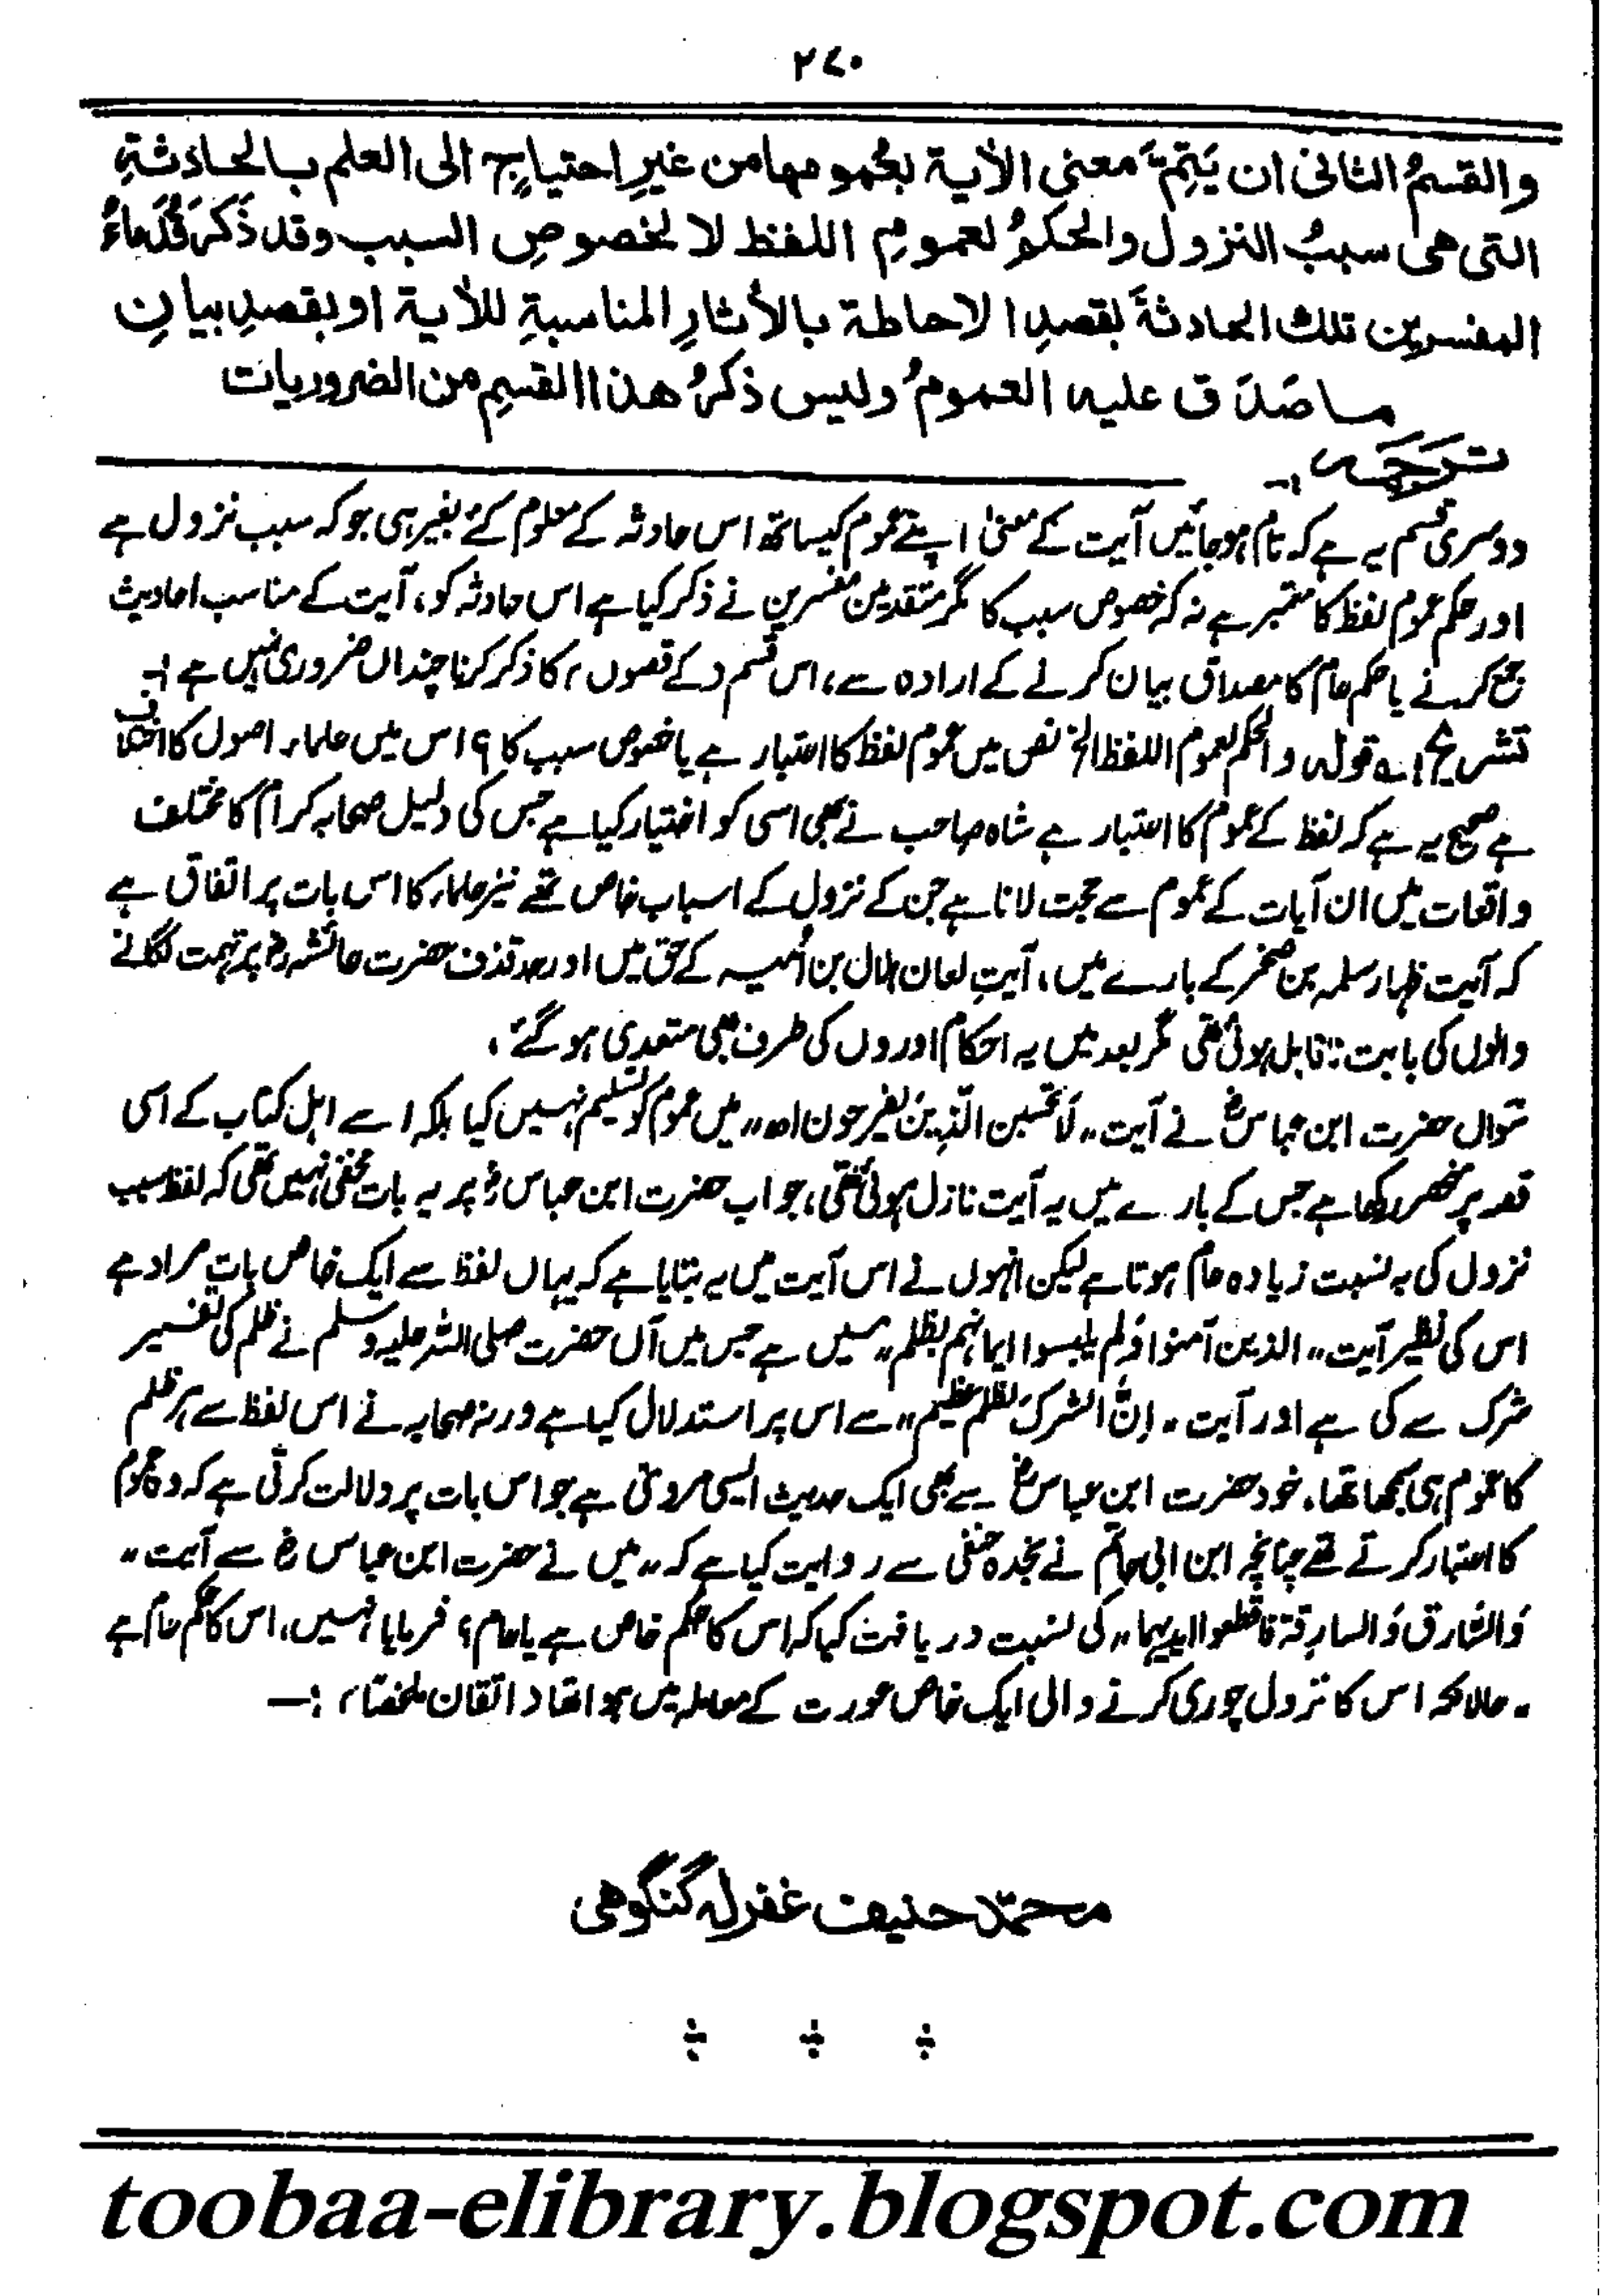 ۲۷۰
والقسمُ الثانی ان یَتِمَّ معنی الاٰیة بعُمومها من غیرِ احتیاجٍ الی العلم بالحادثةِ
التی هی سببُ النزول والحکمُ لعمومِ اللفظ لا لخصوصِ السبب وقد ذَکَرَ قُدَماءُ
المفسرین تلك الحادثةَ بقصدِ الاحاطة بالاٰثارِ المناسبةِ للاٰیة او بقصدِ بیانِ
ماصَدَق علیه العمومُ ولیس ذکرُ هذا القسمِ من الضروریات
ترجمہ :۔
دوسری قسم یہ ہے کہ تام ہوجائیں آیت کے معنیٰ اپنے عموم کیساتھ اس حادثہ کے معلوم کئے بغیر ہی جو کہ سبب نزول ہے
اور حکم عموم لفظ کا معتبر ہے نہ کہ خصوص سبب کا مگر متقدمین مفسرین نے ذکر کیا ہے اس حادثہ کو، آیت کے مناسب احادیث
جمع کرنے یا حکم عام کا مصداق بیان کرنے کے ارادہ سے، اس قسم (کے قصوں) کا ذکر کرنا چنداں ضروری نہیں ہے :۔
تشریح :۔ قولہ والحکم لعموم اللفظ الخ نص میں عموم لفظ کا اعتبار ہے یا خصوص سبب کا ؟ اس میں علماء اصول کا اختلاف
ہے صحیح یہ ہے کہ لفظ کے عموم کا اعتبار ہے شاہ صاحب نے بھی اسی کو اختیار کیا ہے جس کی دلیل صحابہ کرام کا مختلف
واقعات میں ان آیات کے عموم سے حجت لانا ہے جن کے نزول کے اسباب خاص تھے نیز علماء کا اس بات پر اتفاق ہے
کہ آیت ظہار سلمہ بن صخر کے بارے میں، آیتِ لعان ہلال بن اُمیہ کے حق میں اور حد قذف حضرت عائشہ رض پر تہمت لگانے
والوں کی بابت نازل ہوئی تھی مگر بعد میں یہ احکام اوروں کی طرف بھی متعدی ہوگئے ،
سوال حضرت ابن عباس رض نے آیت ،، لَا تحسبن الَّذِینَ یَفرحون اھ،، میں عموم کو تسلیم نہیں کیا بلکہ اسے اہل کتاب کے اسی
قصہ پر منحصر رکھا ہے جس کے بارے میں یہ آیت نازل ہوئی تھی، جواب حضرت ابن عباس رض پر یہ بات مخفی نہیں تھی کہ لفظ سبب
نزول کی بہ نسبت زیادہ عام ہوتا ہے لیکن انہوں نے اس آیت میں یہ بتایا ہے کہ یہاں لفظ سے ایک خاص بات مراد ہے
اس کی نظیر آیت ،، الذین آمنوا وَلم یلبسوا ایمانہم بظلم ،، میں ہے جس میں آں حضرت صلی اللہ علیہ وسلم نے ظلم کی تفسیر
شرک سے کی ہے اور آیت ،، اِنَّ الشرکَ لظلم عظیم ،، سے اس پر استدلال کیا ہے ورنہ صحابہ نے اس لفظ سے ہر ظلم
کا عموم ہی سمجھا تھا، خود حضرت ابن عباس رض سے بھی ایک حدیث ایسی مروی ہے جو اس بات پر دلالت کرتی ہے کہ وہ عموم
کا اعتبار کرتے تھے چنانچہ ابن ابی حاتم نے نجدہ حنفی سے روایت کیا ہے کہ ،، میں نے حضرت ابن عباس رض سے آیت ،،
وَالسَّارق وَالسارقة فاقطعوا ایدیہما،، کی نسبت دریافت کیا کہ اس کا حکم خاص ہے یا عام ؟ فرمایا نہیں، اس کا حکم عام ہے
۔ حالانکہ اس کا نزول چوری کرنے والی ایک خاص عورت کے معاملہ میں ہوا تھا (اتقان ملخصًا) :۔
محمّد حنیف غفرلہ گنگوھی
toobaa-elibrary.blogspot.com